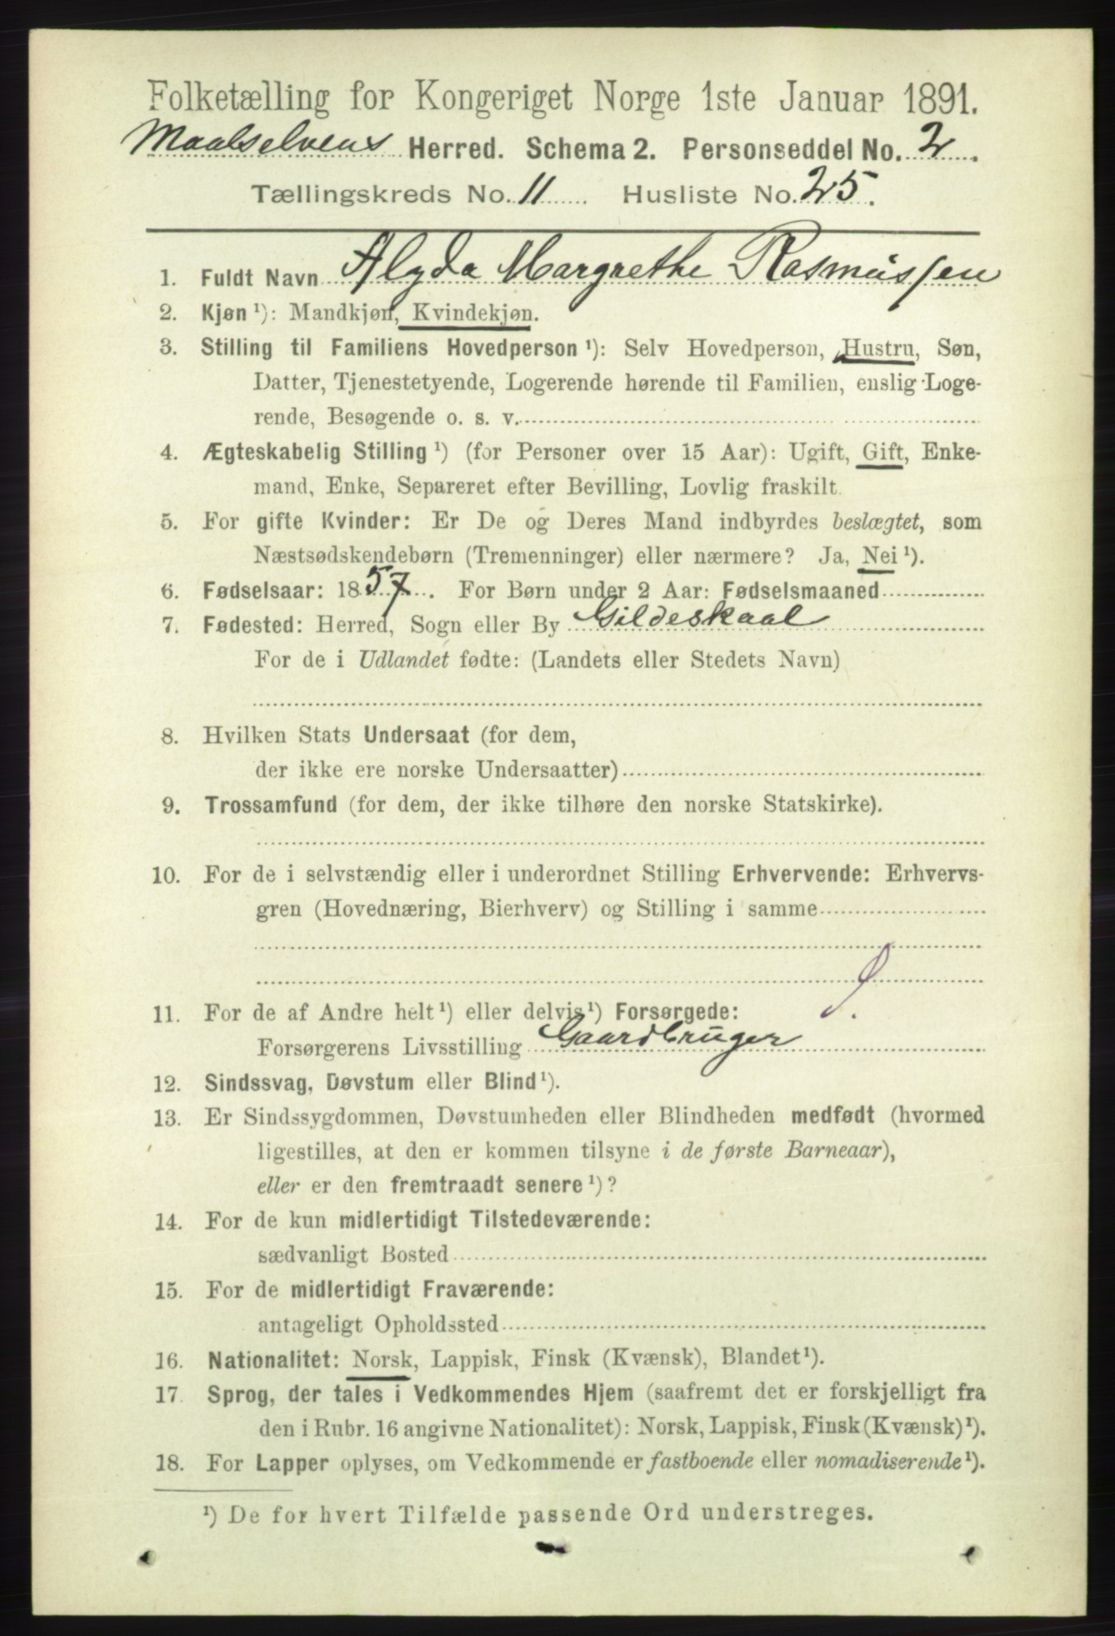 Folketælling for Kongeriget Norge 1ste Januar 1891.
Maalselvens Herred. Schema 2. Personseddel No. 2.
Tællingskreds No. 11 Husliste No. 25.
1. Fuldt Navn Alyda Margrethe Rasmussen
2. Kjøn ¹): Mandkjøn, Kvindekjøn.
3. Stilling til Familiens Hovedperson ¹): Selv Hovedperson, Hustru, Søn,
Datter, Tjenestetyende, Logerende hørende til Familien, enslig Loge-
rende, Besøgende o. s. v.
4. Ægteskabelig Stilling ¹) (for Personer over 15 Aar): Ugift, Gift, Enke-
mand, Enke, Separeret efter Bevilling, Lovlig fraskilt
5. For gifte Kvinder: Er De og Deres Mand indbyrdes beslægtet, som
Næstsødskendebørn (Tremenninger) eller nærmere? Ja, Nei ¹).
6. Fødselsaar: 1857. For Børn under 2 Aar: Fødselsmaaned
7. Fødested: Herred, Sogn eller By Gildeskaal
For de i Udlandet fødte: (Landets eller Stedets Navn)
8. Hvilken Stats Undersaat (for dem,
der ikke ere norske Undersaatter)
9. Trossamfund (for dem, der ikke tilhøre den norske Statskirke).
10. For de i selvstændig eller i underordnet Stilling Erhvervende: Erhvervs-
gren (Hovednæring, Bierhverv) og Stilling i samme
11. For de af Andre helt ¹) eller delvis ¹) Forsørgede:
Forsørgerens Livsstilling Gaardbruger
12. Sindssvag, Døvstum eller Blind ¹).
13. Er Sindssygdommen, Døvstumheden eller Blindheden medfødt (hvormed
ligestilles, at den er kommen tilsyne i de første Barneaar),
eller er den fremtraadt senere ¹)?
14. For de kun midlertidigt Tilstedeværende:
sædvanligt Bosted
15. For de midlertidigt Fraværende:
antageligt Opholdssted
16. Nationalitet: Norsk, Lappisk, Finsk (Kvænsk), Blandet ¹).
17 Sprog, der tales i Vedkommendes Hjem (saafremt det er forskjelligt fra
den i Rubr. 16 angivne Nationalitet): Norsk, Lappisk, Finsk (Kvænsk) ¹).
18. For Lapper oplyses, om Vedkommende er fastboende eller nomadiserende ¹).
¹) De for hvert Tilfælde passende Ord understreges.